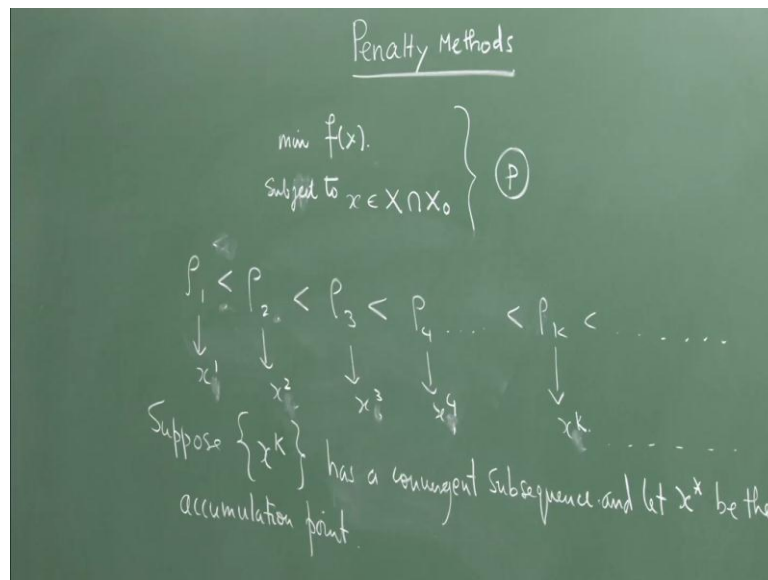 Penalty Methods
min f(x).
Subject to x ∈ X ∩ X₀ } (P)
ρ₁ < ρ₂ < ρ₃ < ρ₄ .... < ρₖ < .......
↓ ↓ ↓ ↓ ↓
x¹ x² x³ x⁴ xᵏ. .......
Suppose {xᴷ} has a convergent subsequence and let x* be the
accumulation point.